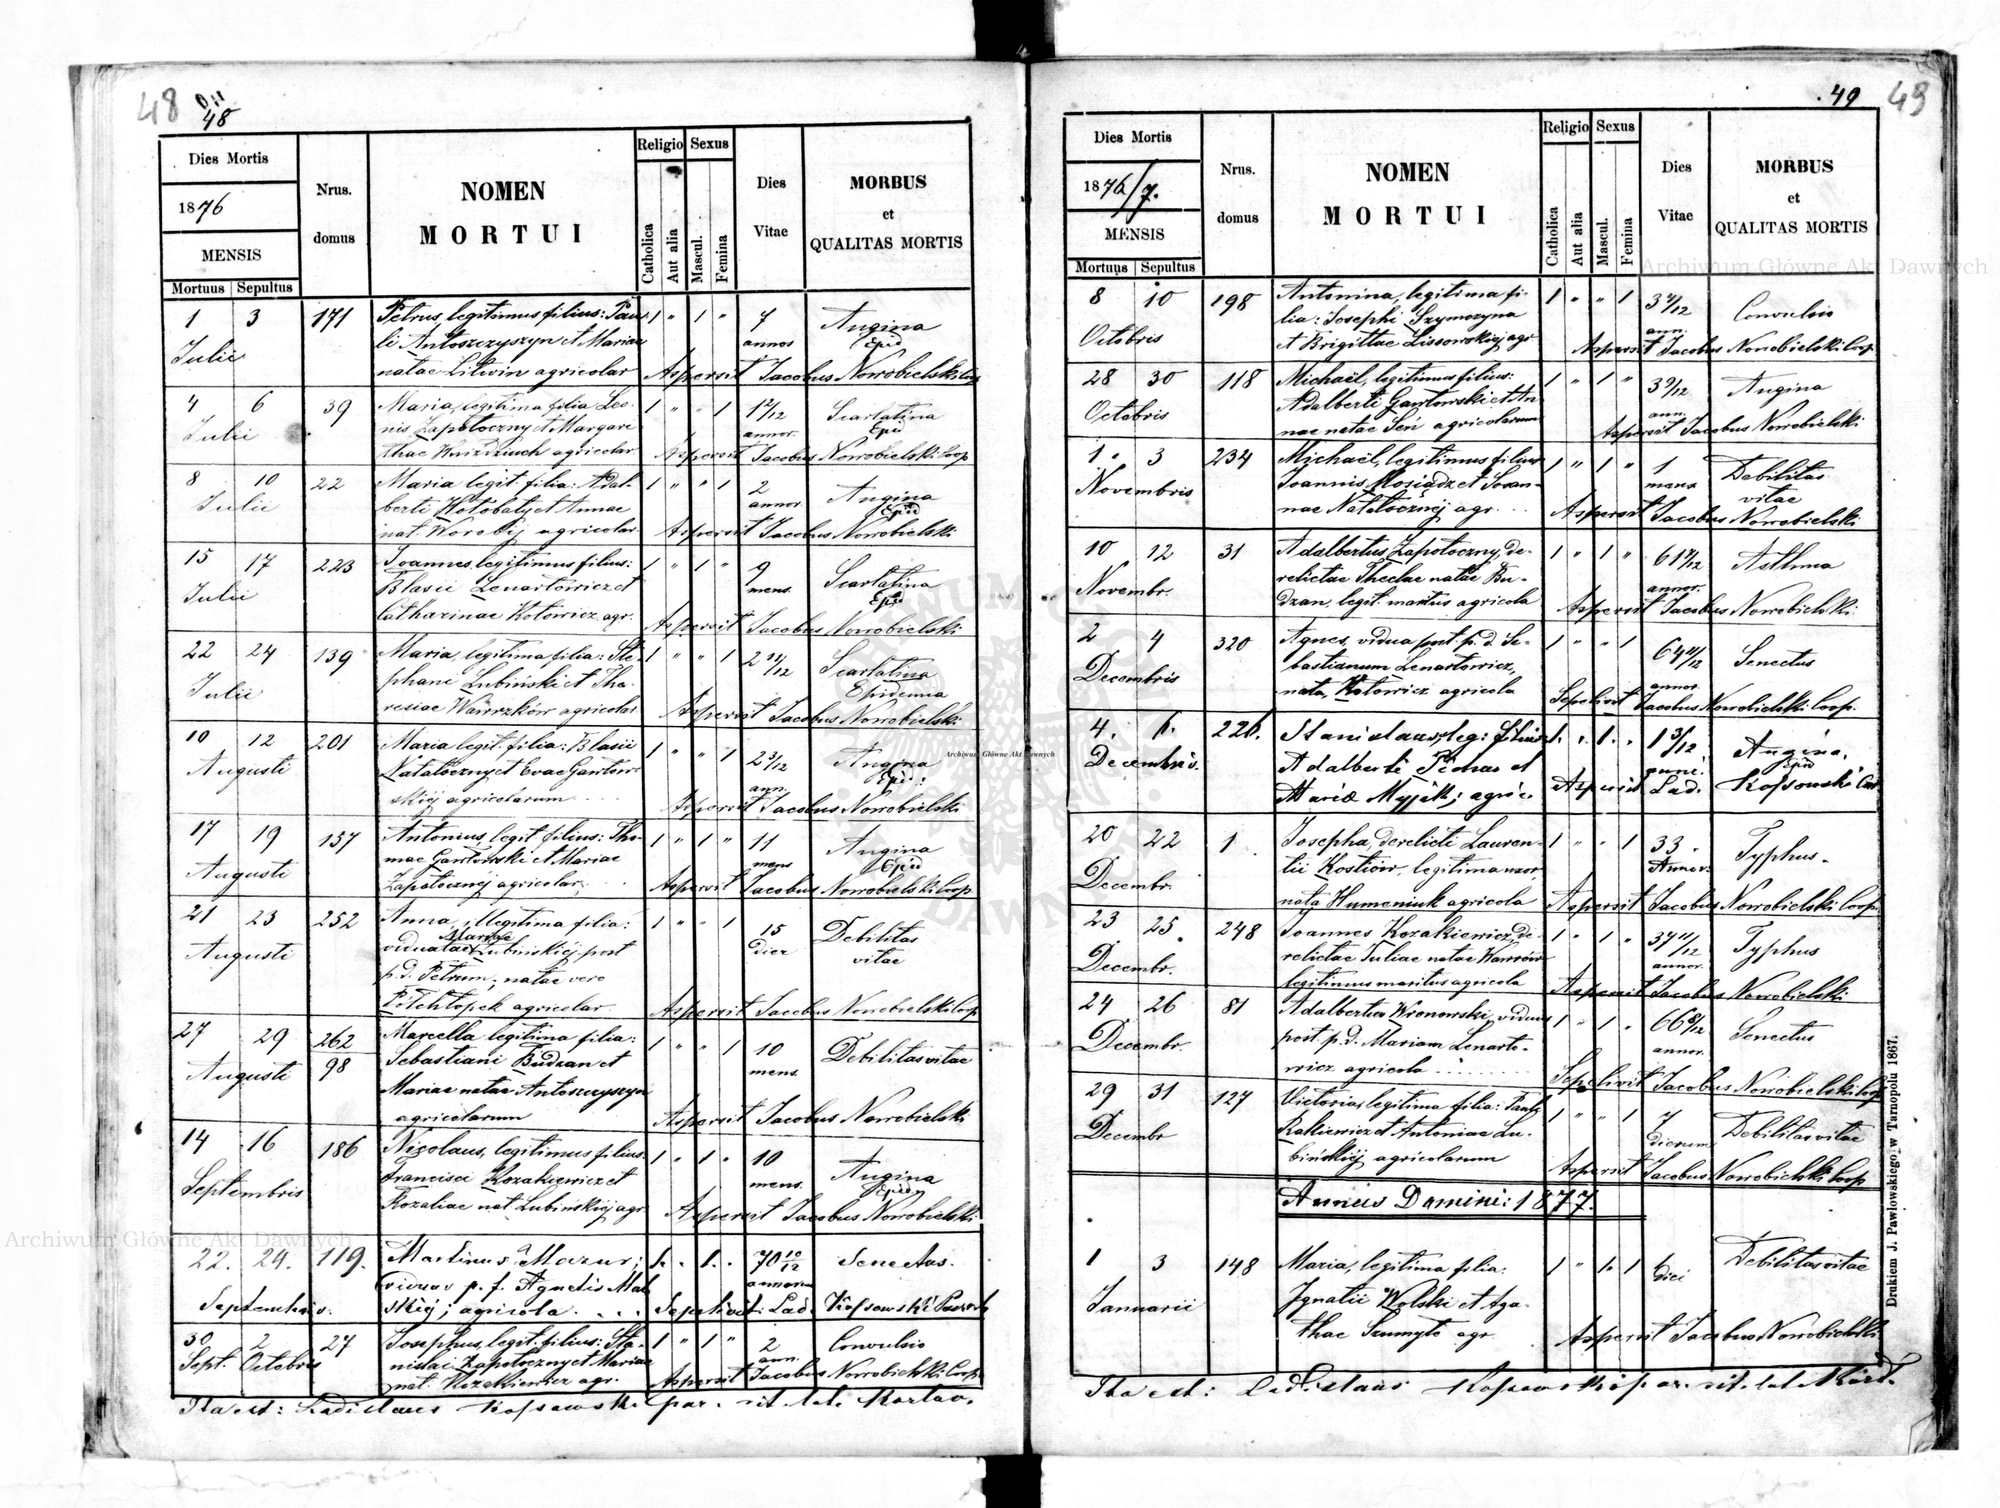 48
48
Dies Mortis
1876
MENSIS
Mortuus Sepultus
Nrus.
domus
NOMEN
MORTUI
Religio
Catholica
Aut alia
Sexus
Mascul.
Femina
Dies
Vitae
MORBUS
et
QUALITAS MORTIS
1 3 171 Petrus, legitimus filius: Pau- 1 " 1 " 7 Angina
Julii li Antoszczyszyn et Mariae annos Epid
natae Litwin agricolar Aspersit Jacobus Nowobielski Coop
4 6 39 Maria, legitima filia Leo- 1 " " 1 1 Scarlatina
Julii nis Zapotoczny et Marga annor. Epid
thae agricolar. Aspersit Jacobus Nowobielski Coop
8 10 22 Maria legit. filia: Adal- 1 " " 1 2 Angina
Julii berti et Annae annor. Epid
nat. Worobij agricolar Aspersit Jacobus Nowobielski
15 17 223 Joannes, legitimus filius: 1 " 1 " 9 Scarlatina
Julii Blasii Lenartowicz et mens. Epid
Catharinae Kotowicz agr. Aspersit Jacobus Nowobielski
22 24 139 Maria, legitima filia: Ste- 1 " " 1 2 11/12 Scarlatina
Julii phani Lubiński et The- Epidemia
resiae Wawrzków agricolar Aspersit Jacobus Nowobielski
10 12 201 Maria legit. filia: Blasii 1 " " 1 2 3/12 Angina
Augusti Natatoczny et Evae Gawłow- ann. Epid:
skiej agricolarum Aspersit Jacobus Nowobielski
17 19 157 Antonius, legit. filius: Tho- 1 " 1 " 11 Angina
Augusti mae Gawłowski et Mariae mens Epid
Zapotocznej agricolar. Aspersit Jacobus Nowobielski Coop
21 23 252 Anna, illegitima filia: 1 " " 1 15 Debilitas
Augusti viduatae Mariae Lubińskiej post dier vitae
p. d. Petrum, natae vero
agricolar Aspersit Jacobus Nowobielski Coop
27 29 262 Marcella legitima filia: 1 " " 1 10 Debilitas vitae
Augusti 98 Sebastiani Budzan et mens.
Mariae natae Antoszczyszyn
agricolarum Aspersit Jacobus Nowobielski
14 16 186 Nicolaus, legitimus filius: 1 " 1 " 10 Angina
Septembris Francisci Kozakiewicz et mens. Epid
Rozaliae nat Lubińskiej agr. Aspersit Jacobus Nowobielski
22. 24. 119. Martinus Mazur; 1. . 1. . 70 10/12 Senectus.
Septembris. viduus p. f. Agnetis annorum
skiej; agricola. . . . Sepelivit: Lad. Kossowski
30 2 27 Josephus, legit. filius: Sta- 1 " 1 " 2 Convulsio
Sept. Octobris nislai Zapotoczny et Mariae ann.
nat. Kozakiewicz agr. Aspersit Jacobus Nowobielski Coop.
Ita est: Ladislaus Kossowski par. rit. lat.
49
49
Dies Mortis
1876/7.
MENSIS
Mortuus Sepultus
Nrus.
domus
NOMEN
MORTUI
Religio
Catholica
Aut alia
Sexus
Mascul.
Femina
Dies
Vitae
MORBUS
et
QUALITAS MORTIS
8 10 198 Antonina, legitima fi- 1 " " 1 3 Convulsio
Octobris lia: Josephi Szymczyna ann.
et Brigittae Lissowskiej agr Aspersit Jacobus Nowobielski Coop.
28 30 118 Michaël, legitimus filius: 1 " 1 " 3 Angina
Octobris Adalberti Gawłowski et An ann.
nae natae Seń agricolarum Aspersit Jacobus Nowobielski
1 3 234 Michaël, legitimus filius 1 " 1 " 1 Debilitas
Novembris Joannis Mosiądz et Joan- mens vitae
nae Natatocznej agr. Aspersit Jacobus Nowobielski
10 12 31 Adalbertus Zapotoczny, de- 1 " 1 " 61 Asthma
Novembr. relictae Theclae natae Bu- annor.
dzan, legit. maritus agricola Aspersit Jacobus Nowobielski
2 4 320 Agnes, vidua post p. d. Se- 1 " " 1 64 Senectus
Decembris bastianum Lenartowicz, annor
nata, Kotowicz agricola Sepelivit Jacobus Nowobielski Coop.
4. 6. 226. Stanislaus leg: filius 1. . 1. . 1 3/12 Angina,
Decembris. Adalberti et Epid
Mariae agric: Aspersit Lad. Kossowski
20 22 1 Josepha, derelicti Lauren- 1 " " 1 33 Typhus.
Decembr. tii Kostiów, legitima uxor, Annor.
nata Humeniuk agricola Aspersit Jacobus Nowobielski Coop.
23 25 248 Joannes Kozakiewicz, de- 1 " 1 " 37 11/12 Typhus
Decembr. relictae Juliae natae Wawrów annor.
legitimus maritus agricola Aspersit Jacobus Nowobielski
24 26 81 Adalbertus Wronowski, viduus 1 " 1 " 66 8/12 Senectus
Decembr. post p. d. Mariam Lenarto- annor.
wicz agricola Sepelivit Jacobus Nowobielski Coop
29 31 127 Victoria, legitima filia: Pauli 1 " " 1 7 Debilitas vitae
Decembr et Antoniae Lu- dierum
bińskiej agricolarum Aspersit Jacobus Nowobielski Coop
Annus Domini: 1877.
1 3 148 Maria, legitima filia: 1 " 1 6 Debilitas vitae
Januarii Ignatii Wolski et Aga- diei
thae Szumyło agr Aspersit Jacobus Nowobielski
Ita est: Ladislaus Kossowski par. rit. lat.
Drukiem J. Pawłowskiego w Tarnopolu 1867.
Archiwum Główne Akt Dawnych
Archiwum Główne Akt Dawnych
Archiwum Główne Akt Dawnych
ARCHIWUM GŁÓWNE AKT DAWNYCH